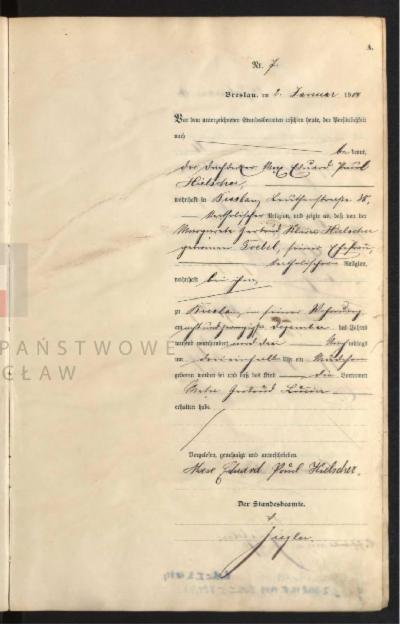 A.
Nr. 7.
Breslau, am 2. Januar 1904
Vor dem unterzeichneten Standesbeamten erschien heute, der Persönlichkeit
nach
be kannt,
der Dachdecker Max Eduard Paul
Hielscher,
wohnhaft in Breslau,
katholischer Religion, und zeigte an, daß von der
Margarete Gertrud Hielscher
geborenen seiner Ehefrau,
katholischer Religion,
wohnhaft bei ihm,
zu Breslau, in seiner Wohnung
am acht und zwanzigsten Dezember des Jahres
tausend neunhundert und drei nachmittags
um drei einhalb Uhr ein Mädchen
geboren worden sei und daß das Kind die Vornamen
Gertrud
erhalten habe.
Vorgelesen, genehmigt und unterschrieben
Max Eduard Paul Hielscher.
Der Standesbeamte.
Ziegler.
PAŃSTWOWE
CŁAW